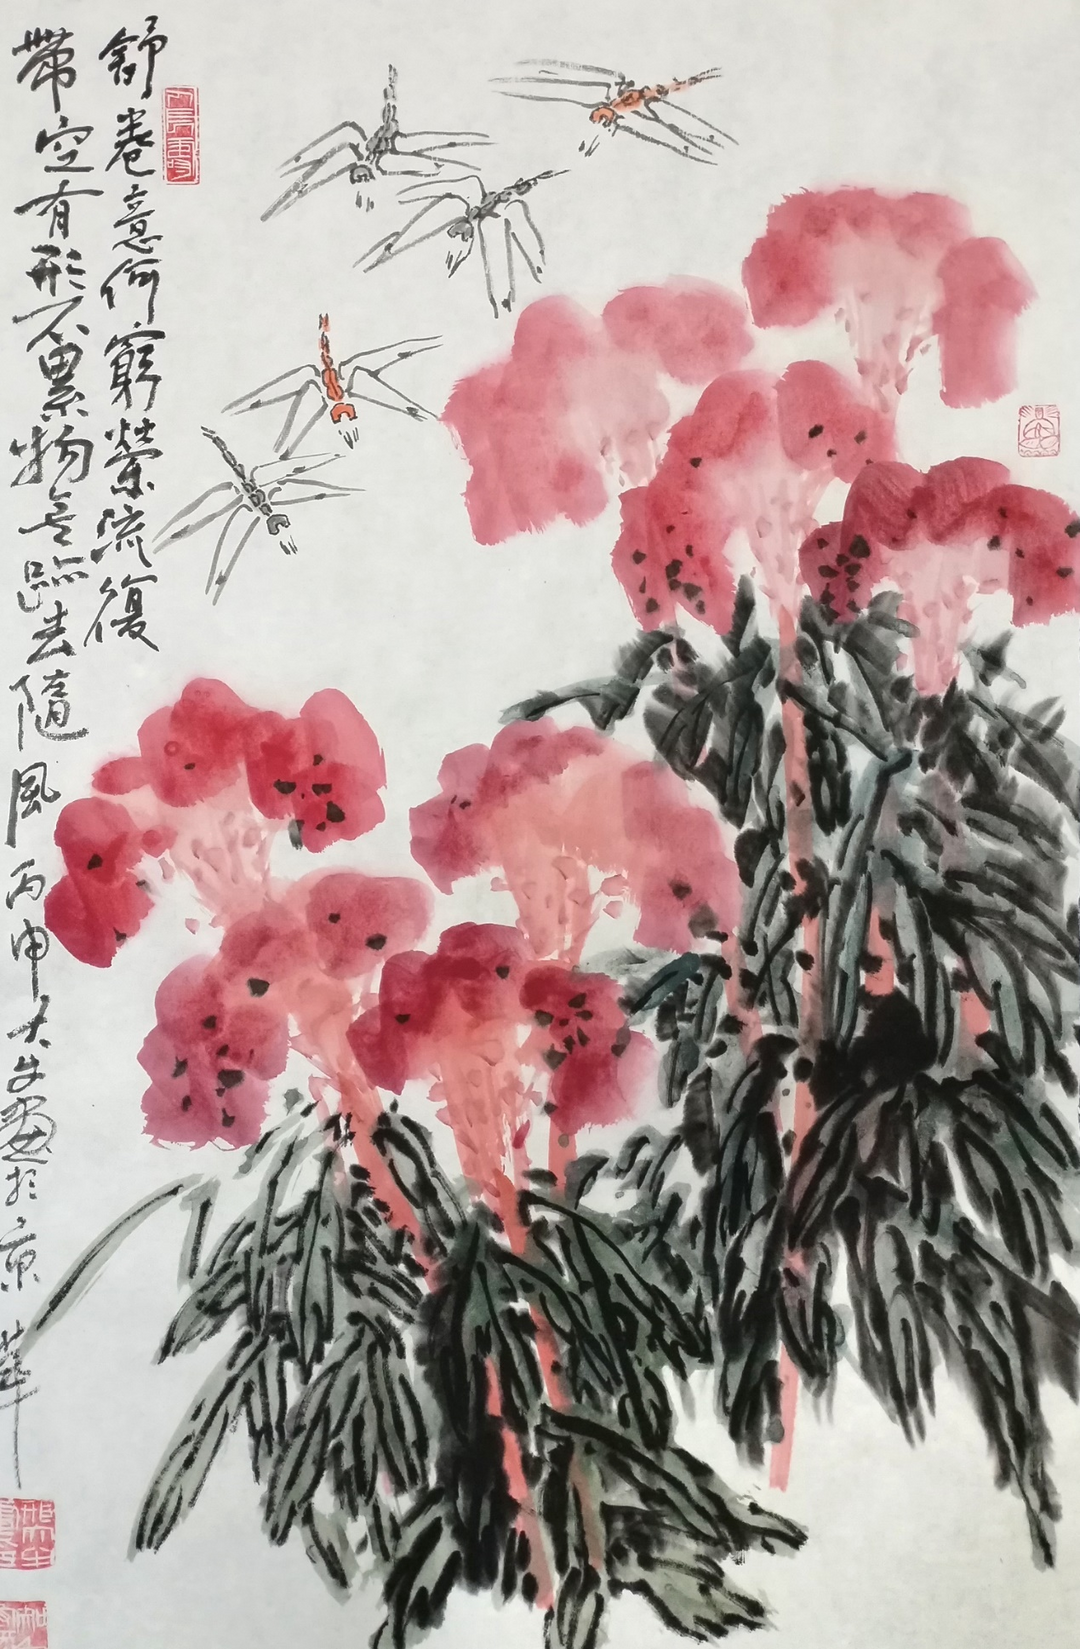 舒卷意何窮縈流復
帶空有形不累物無跡去隨風 丙申大畫於京華